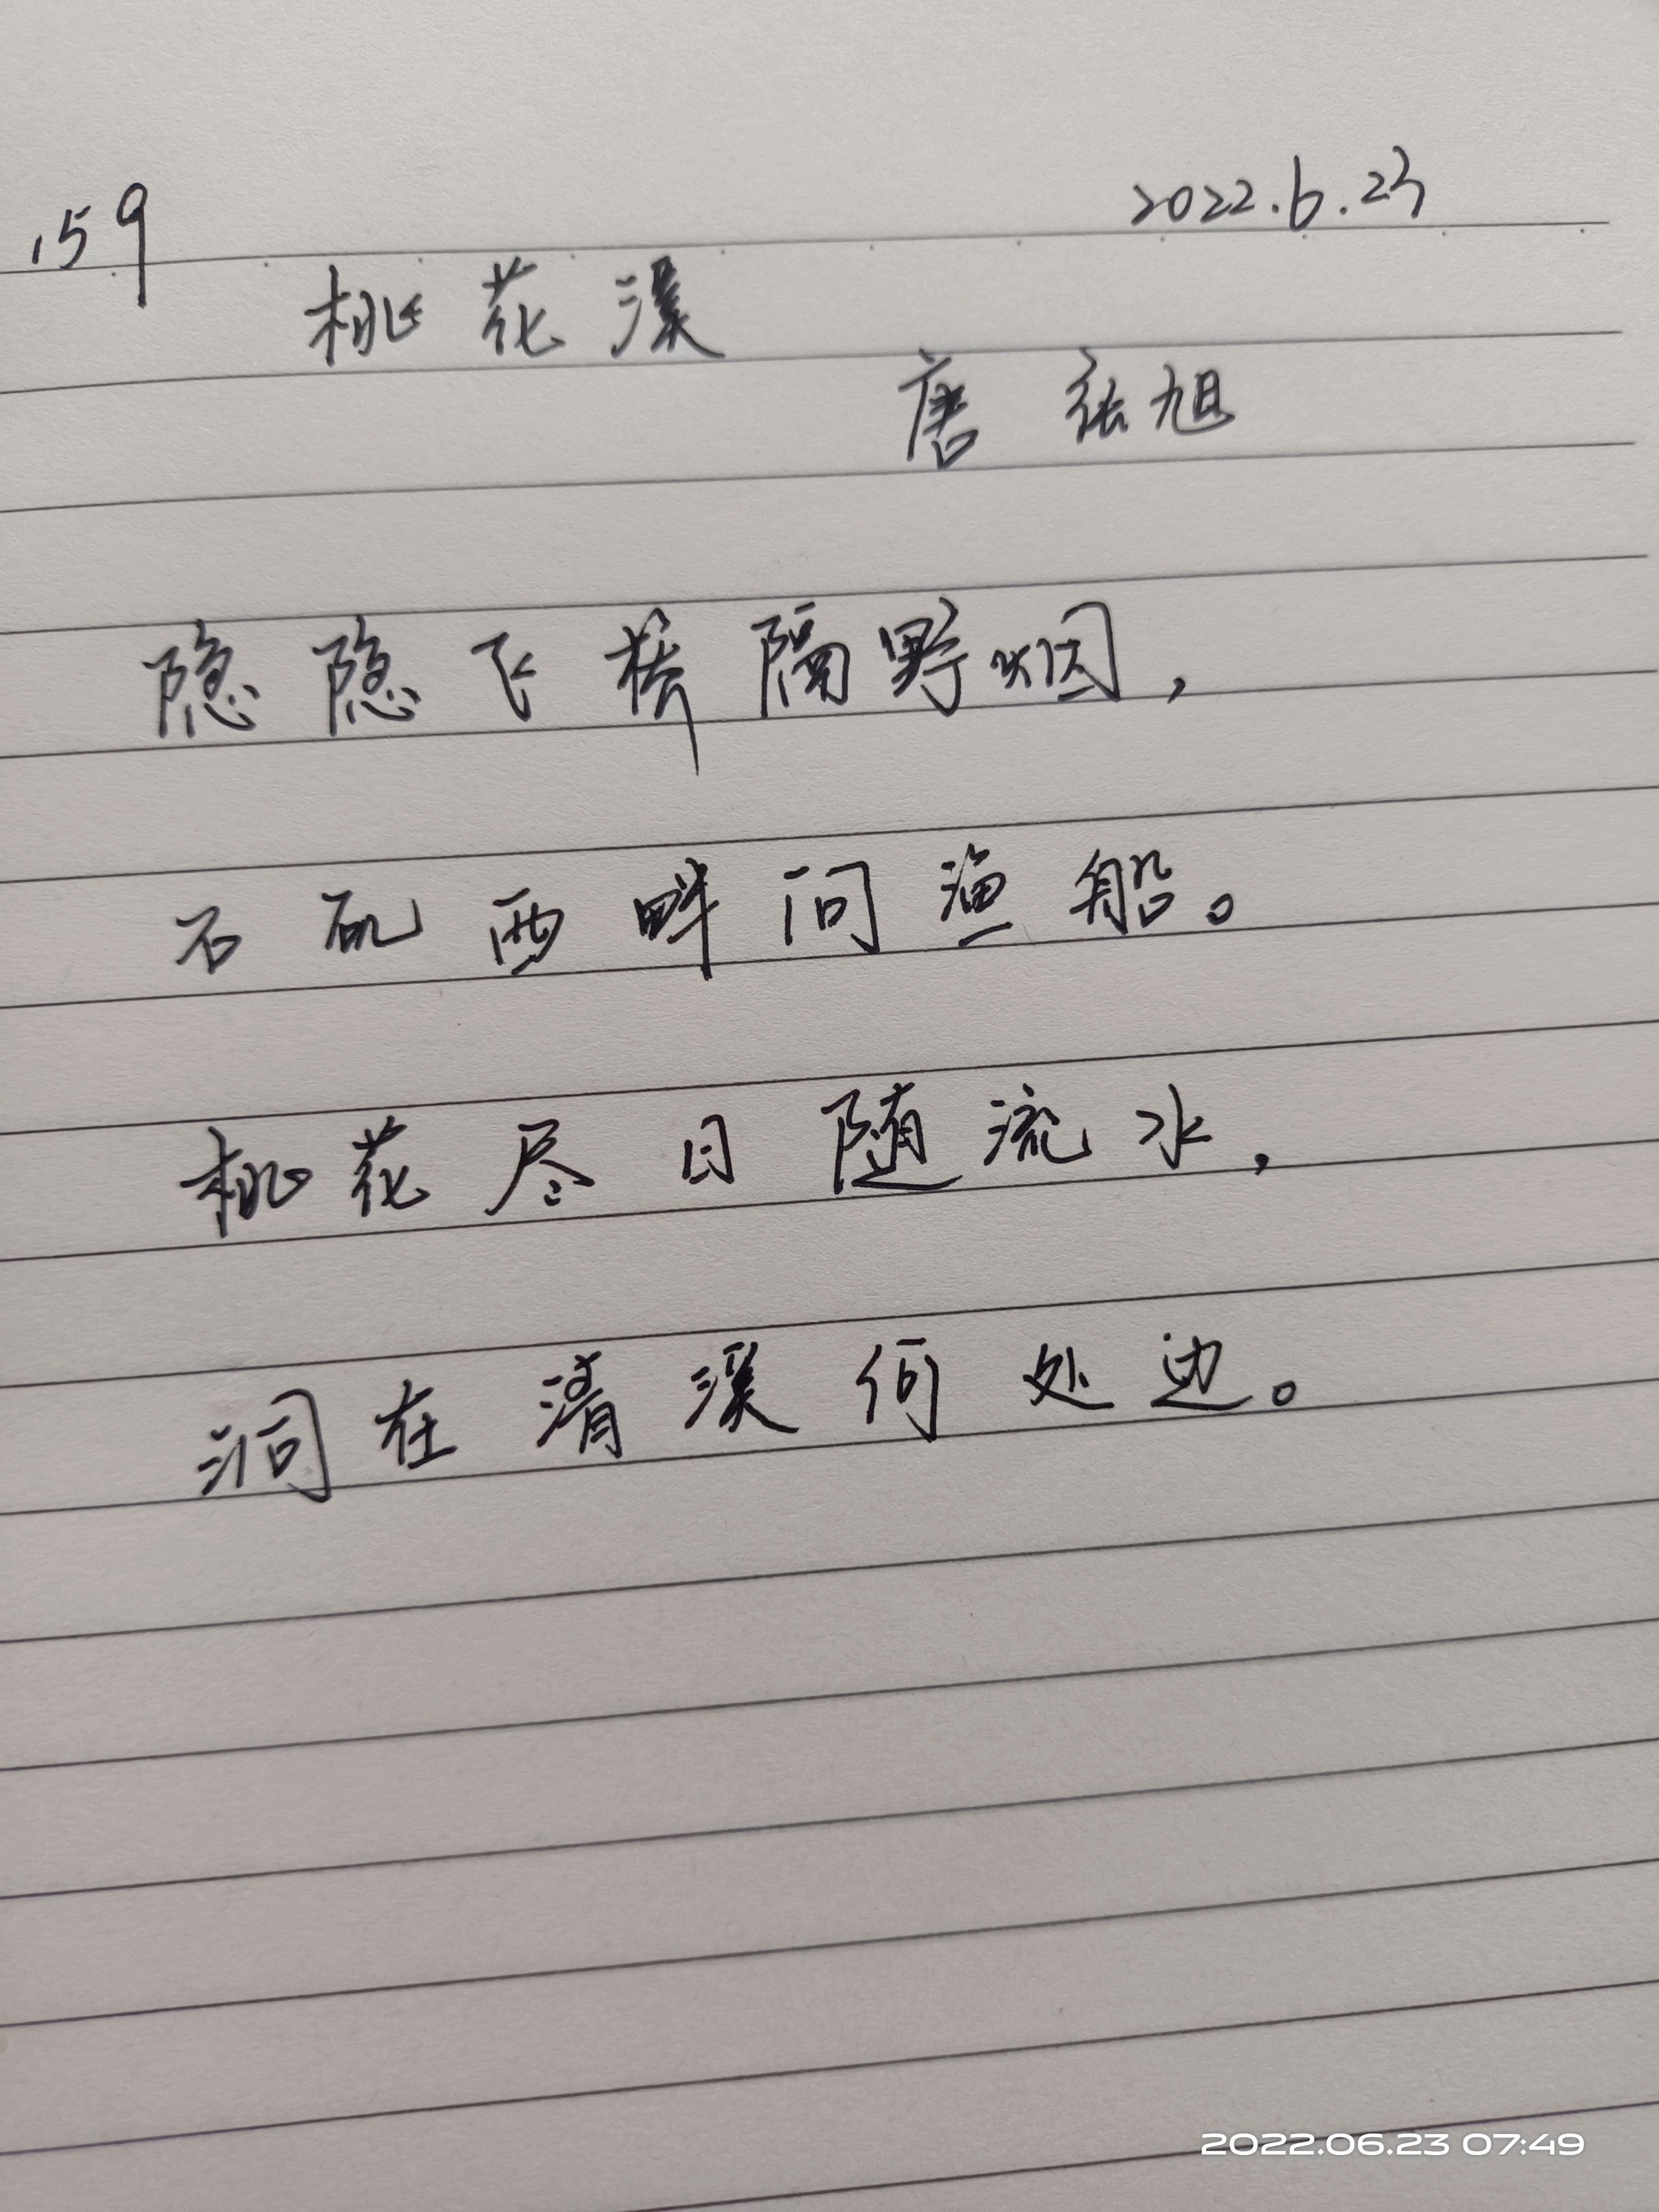 159
2022.6.23
桃花溪
唐 张旭
隐隐飞桥隔野烟，
石矶西畔问渔船。
桃花尽日随流水，
洞在清溪何处边。
2022.06.23 07:49